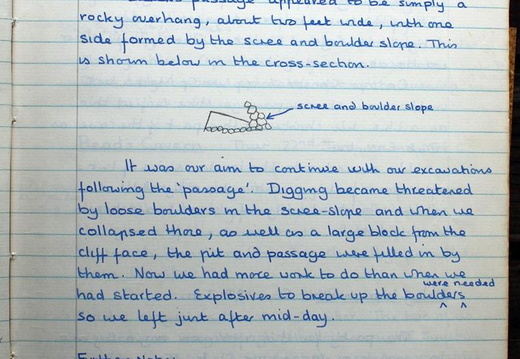 passage appeared to be simply a
rocky overhang, about two feet wide, with one
side formed by the scree and boulder slope. This
is shown below in the cross-section.
scree and boulder slope
It was our aim to continue with our excavations
following the 'passage'. Digging became threatened
by loose boulders in the scree-slope and when we
collapsed these, as well as a large block from the
cliff face, the pit and passage were filled in by
them. Now we had more work to do than when we
were needed
had started. Explosives to break up the boulders
so we left just after mid-day.